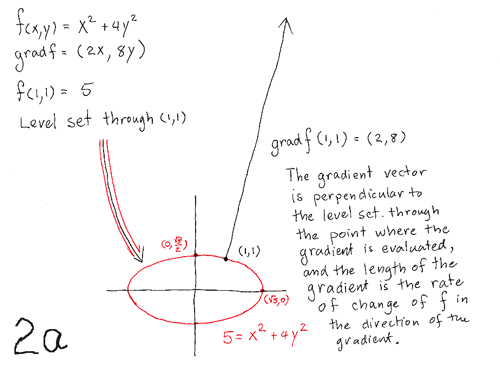 f(x,y) = x² + 4y²
gradf = (2x, 8y)
f(1,1) = 5
Level set through (1,1)
gradf(1,1) = (2,8)
The gradient vector
is perpendicular to
the level set. through
the point where the
gradient is evaluated,
and the length of the
gradient is the rate
of change of f in
the direction of the
gradient.
(0, √5/2)
(1,1)
(√5,0)
5 = x² + 4y²
2a